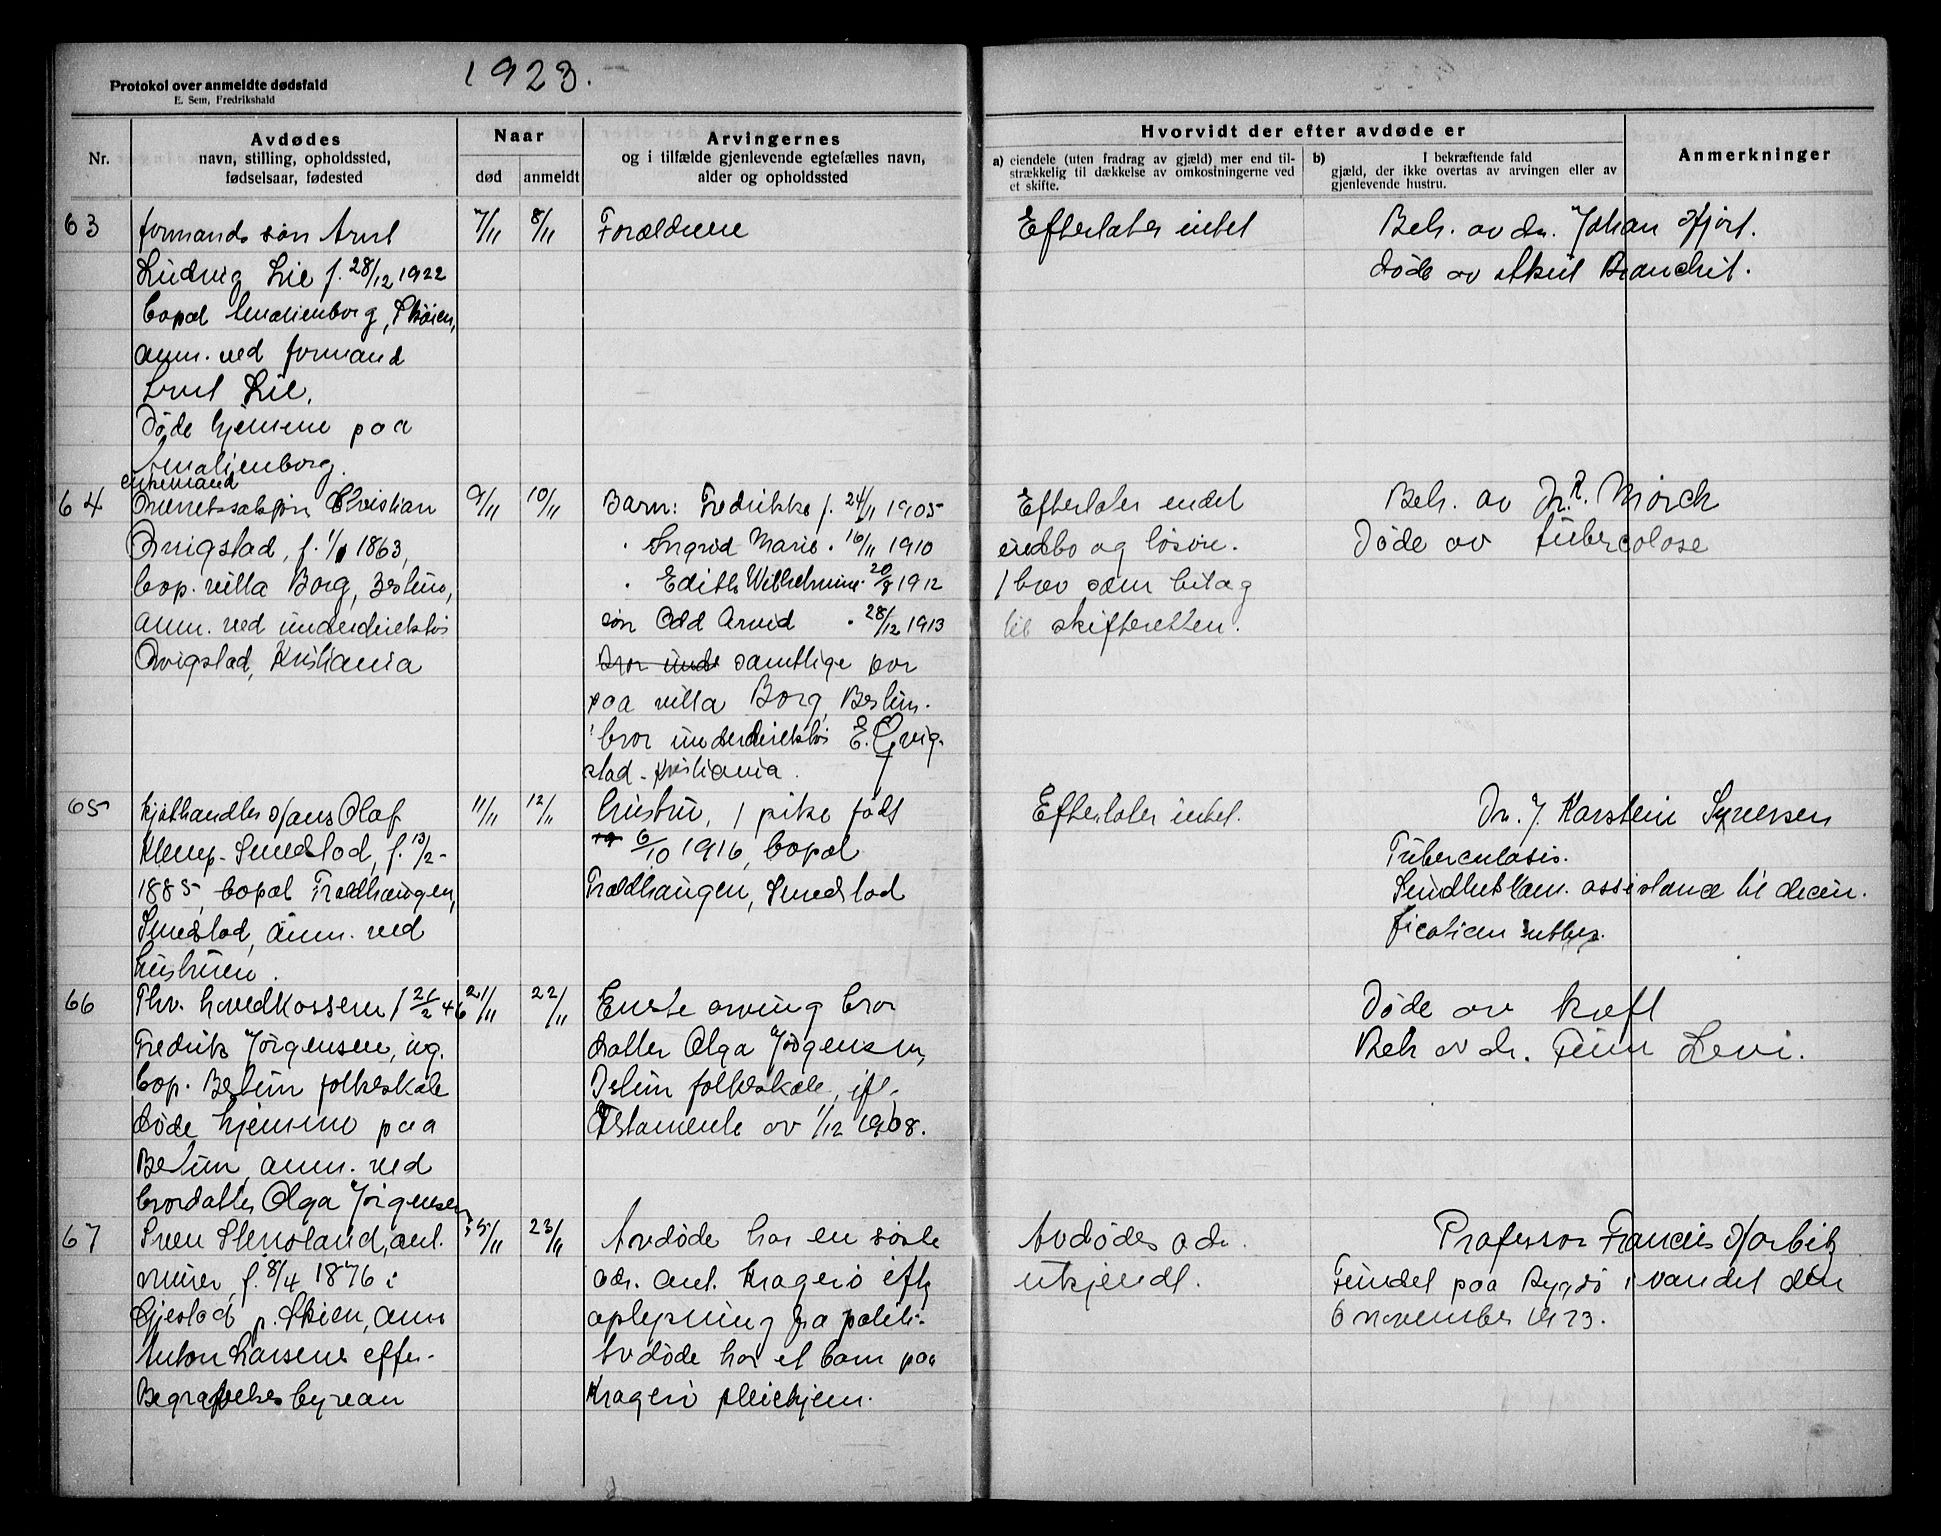 1923.
Protokol over anmeldte dødsfald
E. Sem, Fredrikshald
Nr.
Avdødes
navn, stilling, opholdssted,
fødselsaar, fødested
Naar
død
anmeldt
Arvingernes
og i tilfælde gjenlevende egtefælles navn,
alder og opholdssted
Hvorvidt der efter avdøde er
a) eiendele (uten fradrag av gjæld) mer end til-
strækkelig til dækkelse av omkostningerne ved
et skifte.
b) I bekræftende fald
gjæld, der ikke overtas av arvingen eller av
gjenlevende hustru.
Anmerkninger
63
formands søn Arnt
Ludvig Lie f. 28/12 1922
bopæl Amalienborg, Skøien,
anm. ved formand
Arnt Lie.
Døde hjemme paa
Amalienborg.
7/11
8/11
Forældrene
Efterlater intet
Beh. av dr. Johan Hjort.
Døde av Akut Bronchit.
64
enkemand
Christian
Qvigstad, f. 1863,
bop. villa Borg, Bestun,
anm. ved underdirektør
Qvigstad, Kristiania
9/11
10/11
Barn: Fredrikke f. 24/11 1905
" Ingrid Marie " 16/11 1910
" Edith Wilhelmine " 20/8 1912
søn Odd Arvid " 28/12 1913
samtlige bor
paa villa Borg, Bestun.
bror underdirektør E. Qvig-
stad - Kristiania.
Efterlater endel
indbo og løsøre.
1 brev som bilag
til skifteretten.
Beh. av Dr. R. Mørch
Døde av tubercolose
65
Kjøthandler Hans Olaf
Klemp-Smestad, f. 13/2-
1885, bopæl Træthaugen,
Smestad, anm. ved
hustruen.
11/11
12/11
hustru, 1 pike født
6/10 1916, bopæl
Træthaugen, Smestad
Efterlater intet.
Dr. J. Karstein Syversen
Tuberculosis.
Sundhetskom. assistance til decin-
fication utbes.
66
Fhv. hovedkasserer f 21/2 46
Fredrik Jørgensen, ug.
bop. Bestun folkeskole
døde hjemme paa
Bestun, anm. ved
brordatter Olga Jørgensen
21/11
22/11
Eneste arving bror
datter Olga Jørgensen,
Bestun folkeskole, ifl.
Testamente av 1/12 1908.
Døde av kræft
Beh av dr. Finn Levi.
67
Sven Stensland, ant.
murer, f. 8/4 1876 i
Gjestad p. Skien, anm
Anton Larsens efter-
Begravelsesbyreau
23/11
Avdøde har en søster
adr. ant. Kragerø efter
oplysning fra politi-
Avdøde har et barn paa
Kragerø pleiehjem.
Avdødes adr.
ukjendt.
Professor Francis Harbitz
Fundet paa Bygdø i vandet den
6 november 1923.